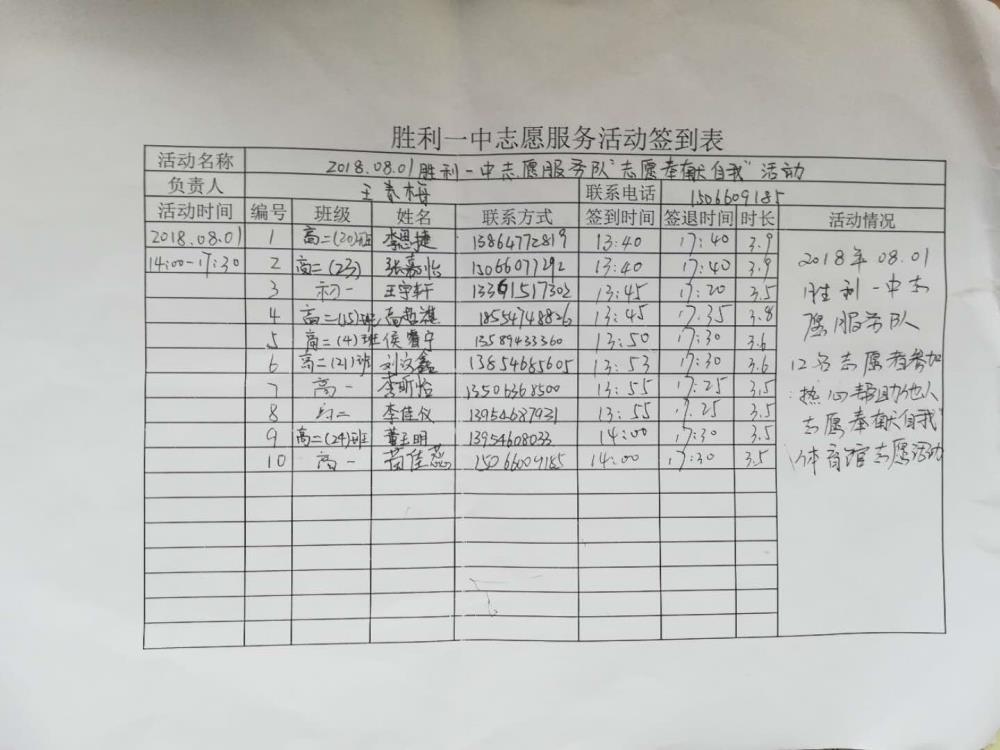 胜利一中志愿服务活动签到表
活动名称 2018.08.01胜利一中志愿服务队"志愿奉献自我"活动
负责人 王春梅 联系电话 1506609185
活动时间 编号 班级 姓名 联系方式 签到时间 签退时间 时长 活动情况
2018.08.01 1 高二(20)班 李思捷 15864772819 13:40 17:40 3.9
14:00-17:30 2 高二(23) 张嘉怡 15066077292 13:40 17:40 3.9
3 初一 王宇轩 13361517302 13:45 17:20 3.5
4 高二(15)班 高哲祺 18554748826 13:45 17:35 3.8
5 高二(4)班 侯宁 13589433360 13:50 17:30 3.6
6 高二(21)班 刘汉鑫 13854685605 13:53 17:30 3.6
7 高一 李昕怡 13506368500 13:55 17:25 3.5
8 初二 李佳仪 13954687931 13:55 17:25 3.5
9 高二(24)班 董玉明 13954608033 14:00 17:30 3.5
10 高一 苗佳蕊 15066009185 14:00 17:30 3.5
2018年08.01
胜利一中志
愿服务队
12名志愿者参加
热心帮助他人
志愿奉献自我"
体育馆志愿活动